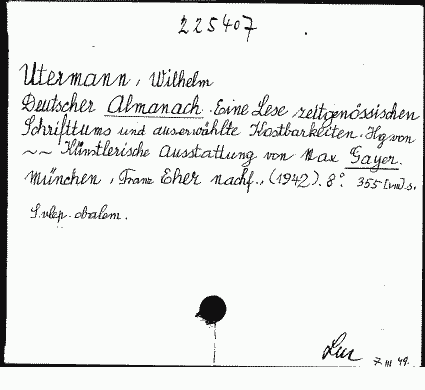 225407
Utermann, Wilhelm
Deutscher Almanach. Eine Lese zeitgenössischen
Schrifttums und auserwählte Kostbarkeiten. Hg von
~~ Künstlerische Ausstattung von Max Gayer.
München, Franz Eher nachf., (1942). 8° 355 [VIII] s.
S vlep. obalem.
7 III 49.